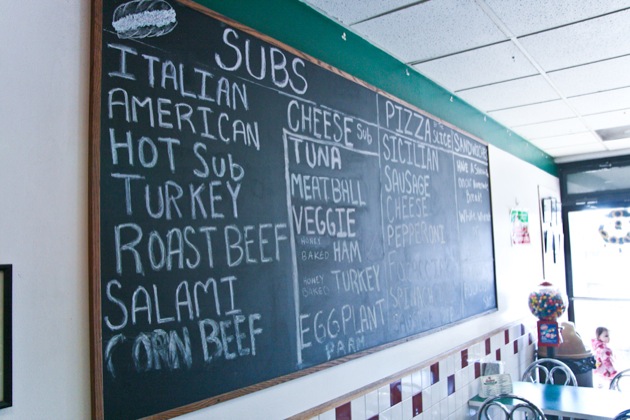 SUBS
ITALIAN
AMERICAN
HOT SUB
TURKEY
ROAST BEEF
SALAMI
CORN BEEF
CHEESE SUB
TUNA
MEATBALL
VEGGIE
HONEY BAKED HAM
HONEY BAKED TURKEY
EGGPLANT
PARM
PIZZA SLICE
SICILIAN
SAUSAGE
CHEESE
PEPPERONI
SPINACH
SANDWICH